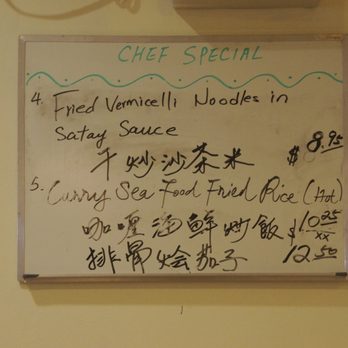 CHEF SPECIAL
4. Fried Vermicelli Noodles in
Satay Sauce
干炒沙茶米 $8.95
5. Curry Sea Food Fried Rice (Hot)
咖喱海鮮炒飯 $10.25
排骨烩茄子 12.50